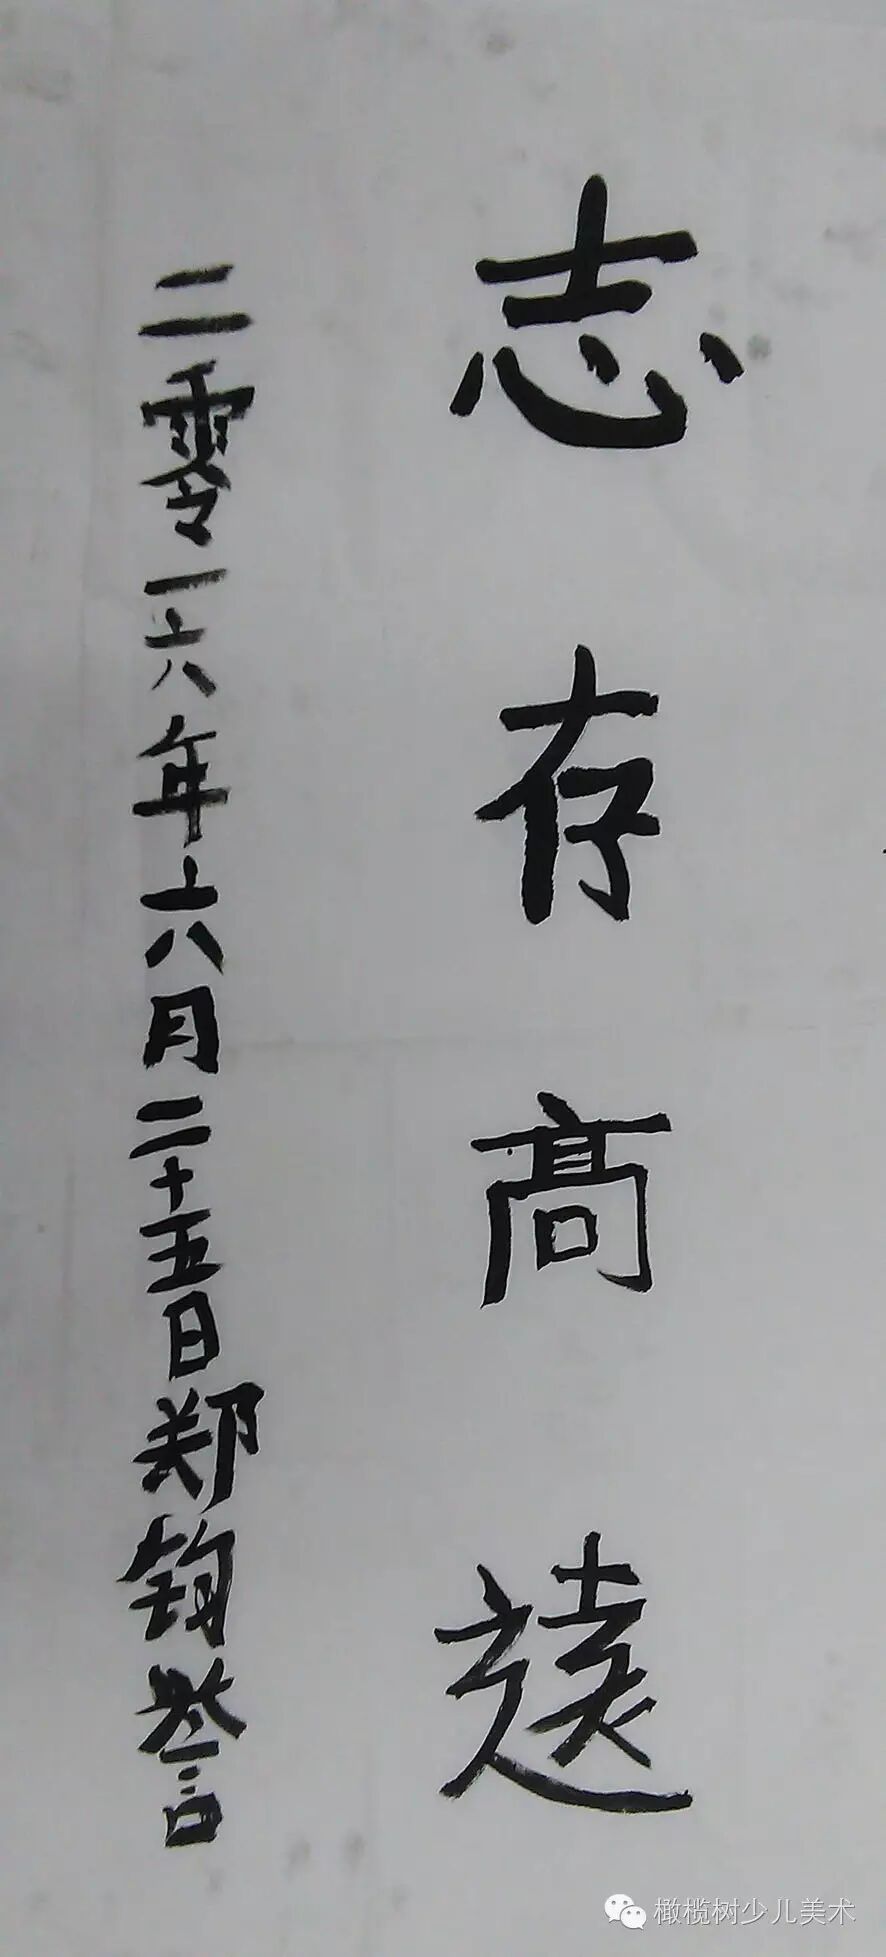 志存高遠
二零一六年六月二十五日郑钧誉
橄榄树少儿美术